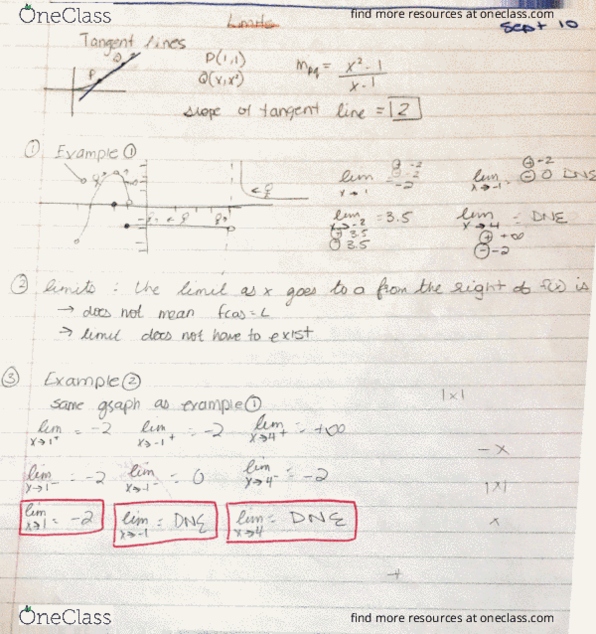 OneClass
find more resources at oneclass.com
Limits
Sept 10
Tangent lines
P(1,1)
Q(x,x²)
m_PQ = x²-1 / x-1
slope of tangent line = 2
① Example ①
lim x→1 = -2
⊕ -2
⊖ -2
lim x→-1
⊕ -2
⊖ 0 DNE
lim x→-2 = 3.5
⊕ 3.5
⊖ 3.5
lim x→4 = DNE
⊕ +∞
⊖ -2
② limits : the limit as x goes to a from the right of f(x) is
→ does not mean f(a)=L
→ limit does not have to exist
③ Example ②
same graph as example ①
lim x→1⁺ = -2 lim x→-1⁺ = -2 lim x→4⁺ = +∞
lim x→1⁻ = -2 lim x→-1⁻ = 0 lim x→4⁻ = -2
lim x→1 = -2 lim x→-1 = DNE lim x→4 = DNE
|x|
-x
|x|
x
+
OneClass
find more resources at oneclass.com